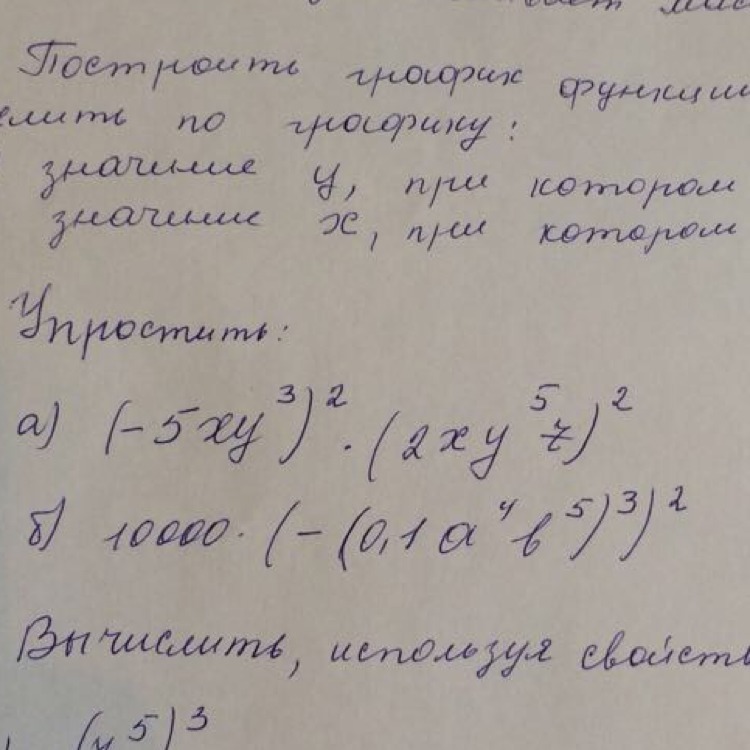 Построить график функции
по графику:
значение y, при котором
значение x, при котором
Упростить:
а) (-5xy³)² · (2xy⁵z)²
б) 10000 · (-(0,1a⁴b⁵)³)²
Вычислить, используя
⁵)³